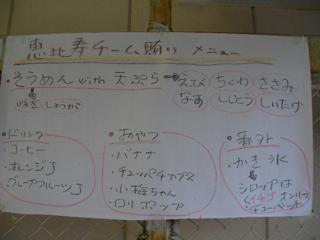 恵比寿チーム賄い メニュー
・そうめん with 天ぷら
えび ちくわ ささみ
なす ししとう しいたけ
ねぎ しょうが
・ドリンク
・コーヒー
・オレンジJ
・グレープフルーツJ
・おやつ
・バナナ
・チュッパチャプス
・小梅ちゃん
・ロリポップ
・番外
・かき氷
シロップは
(イチゴオンリー)
・チューペット